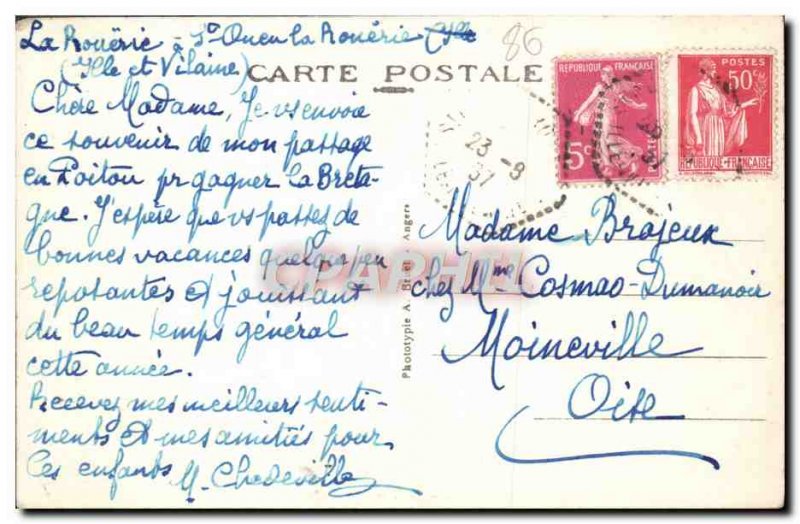 La Rouërie à St Ouen la Rouërie (Ille
(Ille et Vilaine)
86
CARTE POSTALE
Chère Madame, Je vs envoie
ce souvenir de mon passage
en Poitou pr gagner la Breta-
gne. J'espère que vs passez de
bonnes vacances quelque peu
reposantes et jouissant
du beau temps général
cette année.
Recevez mes meilleurs senti-
ments et mes amitiés pour
les enfants M. Chedeville
Phototypie A. Angers
REPUBLIQUE FRANÇAISE
5c
POSTES
50c
REPUBLIQUE FRANÇAISE
23 -8
37
Madame Brajeux
chez Mme Cosmao-Dumanoir
Moineville
Oise
CPAPHIL